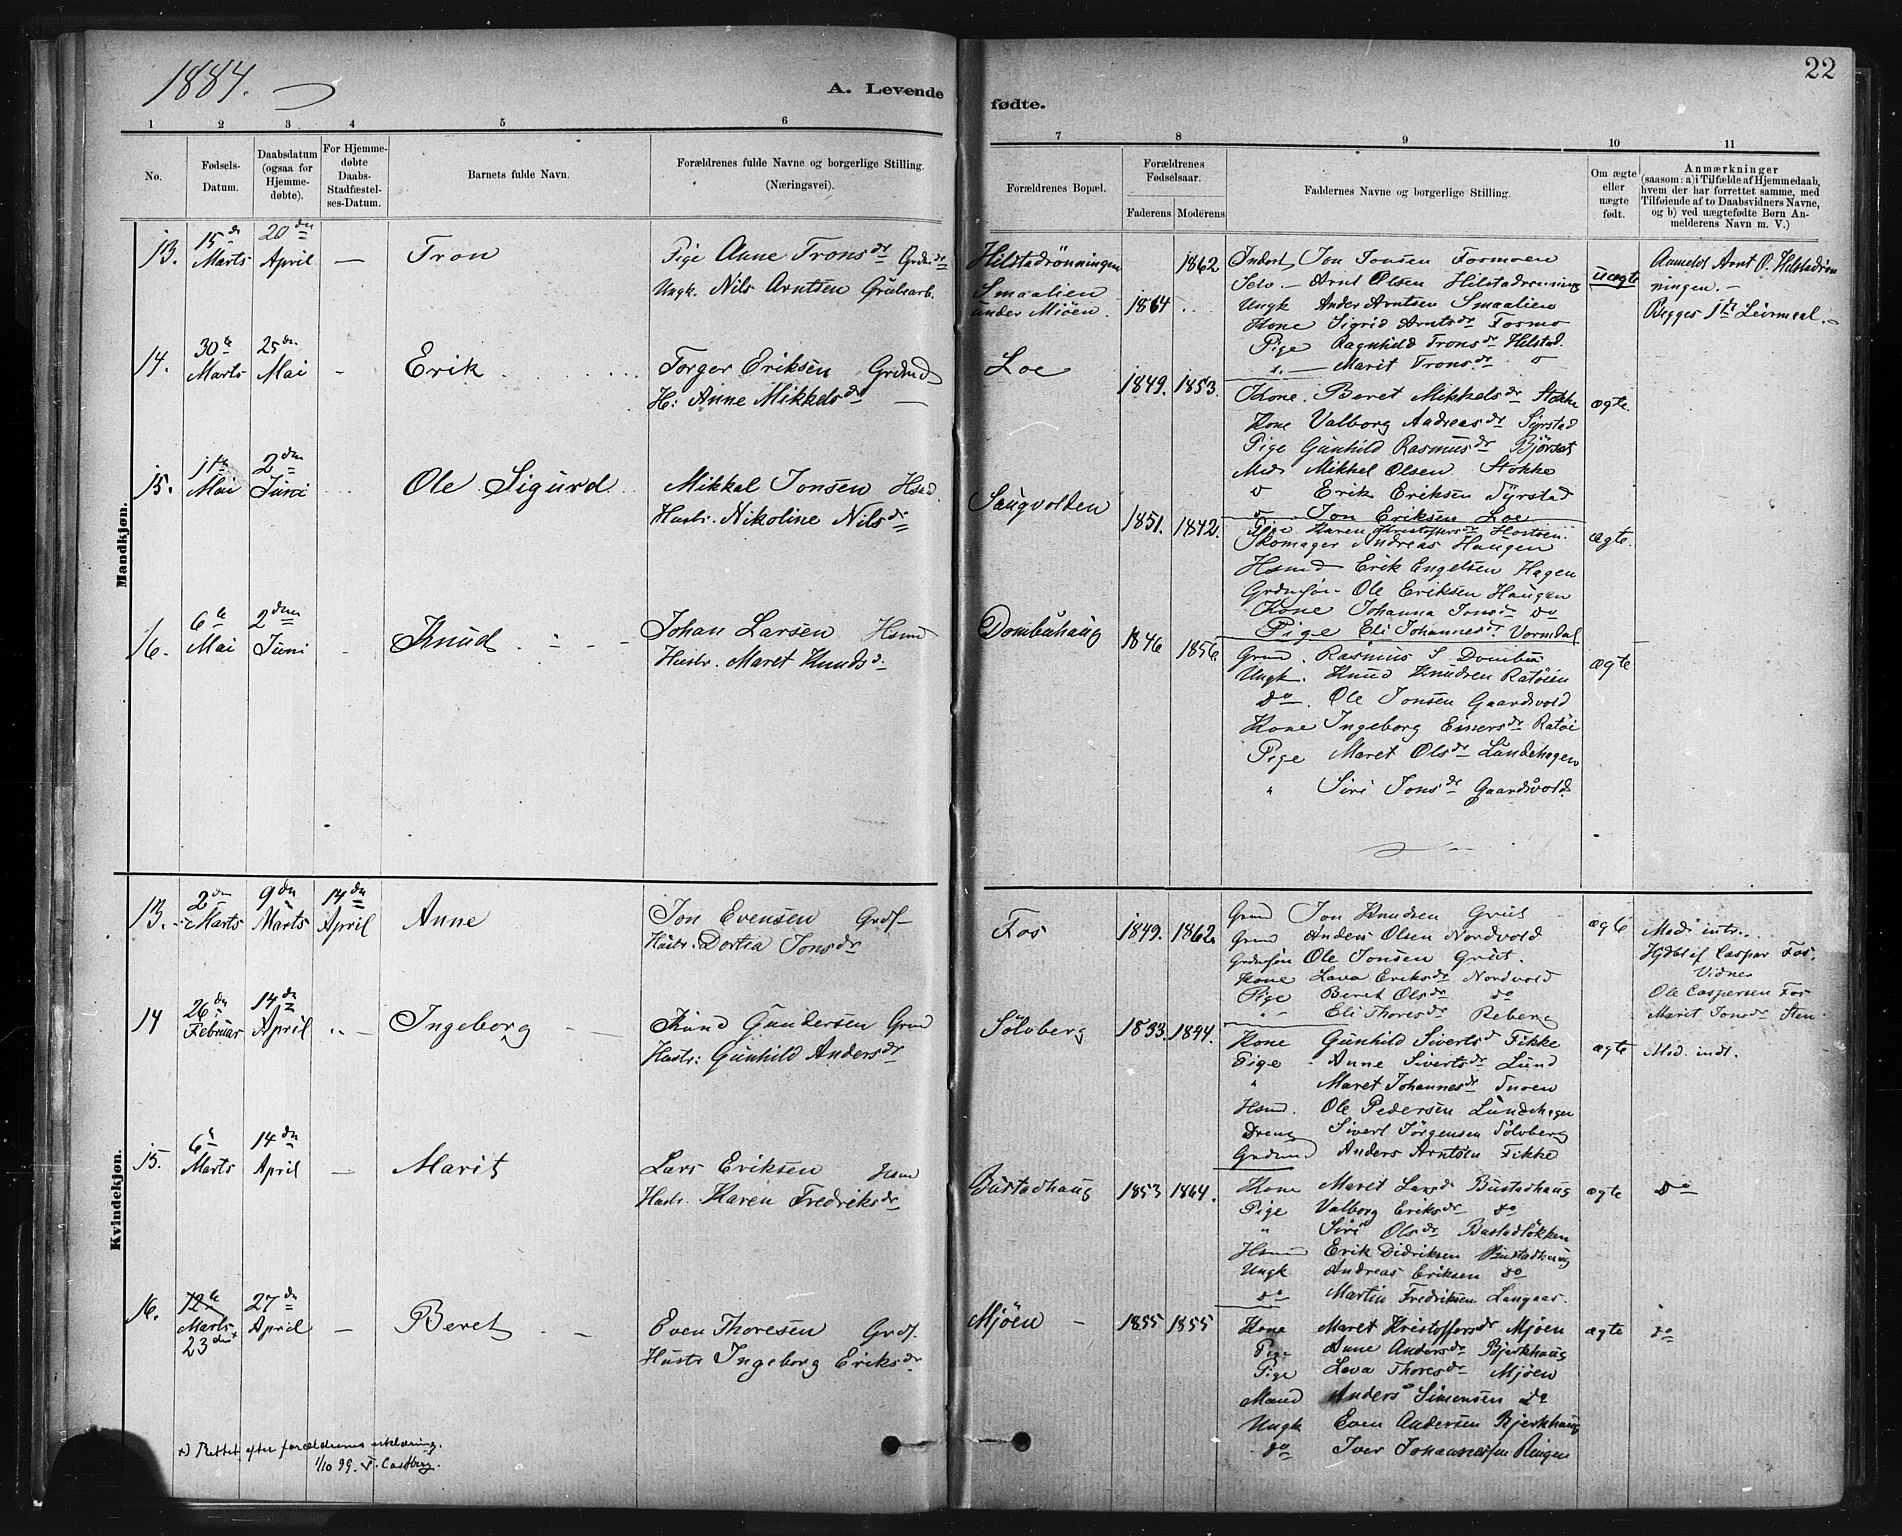 1884.
22
A. Levende fødte.
1 2 3 4 5 6 7 8 9 10 11
No.
Fødsels-
Datum.
Daabsdatum
(ogsaa for
Hjemme-
døbte).
For Hjemme-
døbte
Daabs-
Stadfæstel-
ses-Datum.
Barnets fulde Navn.
Forældrenes fulde Navne og borgerlige Stilling.
(Næringsvei).
Forældrenes Bopæl.
Forældrenes
Fødselsaar.
Faderens Moderens
Faddernes Navne og borgerlige Stilling.
Om ægte
eller
uægte
født.
Anmærkninger
(saasom: a) i Tilfælde af Hjemmedaab,
hvem der har forrettet samme, med
Tilføiende af to Daabsvidners Navne,
og b) ved uægtefødte Børn An-
melderens Navn m. V.)
Mandkjøn.
13.
15de
Marts
20den
April
—
Tron
Pige Anne Tronsdr
Ungk. Nils Arntsen Grubearb.
Hilstadrønningen
Smaalien
under Mjöen.
1864
1862
Inderst Jon Jonsen Formoen
Selv. — Arnt Olsen Hilstadrønning
Ungk Ander Arntsen Smaalien
Kone Sigrid Arntsdr Fosmo
Pige Ragnhild Tronsdr Hilstad.
— Marit Tronsdr
uægte
Anmeldt Arnt O. Hilstadrøn
ningen. —
Begges 1ste Leirmaal.
14.
30te
Marts
25de
Mai
-
Erik
Torger Eriksen Grdmd
H: Anne Mikkelsdr —
Loe
1849. 1853.
Kone. Beret Mikkelsdr Stokke
Kone Valborg Andreasdr Syrstad
Pige Gunhild Rasmusdr Bjørset
Md. Mikkel Olsen Stokke
Erik Eriksen Syrstad
Jon Eriksen Loe
ægte.
15.
11te
Mai
2den
Juni
Ole Sigurd
Mikkal Jonsen Hsmd.
Hustr. Nikoline Nilsdr
Saugvolden
1851. 1842.
Pige Karen Kristoffersdr Hostoen
Skomager Andreas Haugen
Hsmd Erik Engelsen Hagen
Grdmsøn Ole Eriksen Haugen
Kone Johanna Jonsdr do
Pige Eli Johannesdr Vormdal
ægte.
16.
6te
Mai
2den
Juni
Knud
Johan Larsen Hsmd
Hustr. Maret Knudsdr
Dombuhaug
1846 1856.
Grmd. Rasmus S Dombu
Ungk. Knud Knudsen Ratøien
do. Ole Jonsen Gaardsvold
Kone Ingeborg Einersdr Ratøi
Pige Maret Olsdr Lundehagen
" Siri Jonsdr Gaardsvold
ægte
Kvindekjøn.
13.
2den
Marts
9den
Marts
14den
April
Anne
Jon Evensen Grdf
Hustr. Dortia Jonsdr
Fos
1849. 1862.
Grmd Jon Knudsen Grut
Grmd Anders Olsen Nordvold
Grdmsøn Ole Jonsen Grut.
Kone Lava Eriksdr Nordvold
Pige Beret Olsdr do
" Eli Thoresdr Reberg
ægte
Mod. intr.
Hjdbt af Caspar Fos.
Vidner
Ole Caspersen Fos
Maret Jonsdr Sten
14
26de
Februar
14den
April
Ingeborg
Knud Gundersen Grmd
Hustr: Gunhild Andersdr
Sölvberg
1833. 1844.
Kone Gunhild Sivertsd Fikke
Pige Anne Sivertsdr Lund
" Maret Johannesdr
Hsmd. Ole Pedersen Lundehagen
Dreng Sivert Jørgensen Sölvberg
Grdmd Anders Arntsen Fikke
ægte
Mod. indl.
15.
6te
Marts
14den
April
—
Marit
Lars Eriksen Hsmd
Hustr. Karen Fredriksdr
Bustadhaug
1853 1864.
Kone Maret Larsdr Bustadhaug
Pige Valborg Eriksdr do
" Siri Olsdr Bustadløkken
Hsmd Erik Didriksen Bustadhaug
Ungk Andreas Eriksen do
do Martin Fredriksen Langaas.
ægte
do
16.
12te
Marts
23de x
27de
April
—
Beret
Even Thoresen Grdf.
Hustr Ingeborg Eriksdr
Mjöen
1855 1855
Kone Maret Kristoffersdr Mjöen
Pige Anne Andersdr Bjerkhaug
Pige Lava Thoresdr Mjöen
Mand Anders Simensen do
Ungk Even Andersen Bjerkhaug
do Iver Johannessen Ringen
ægte
do
x) Rettet efter forældrenes erklæring.
1/10 99. F. Castberg.